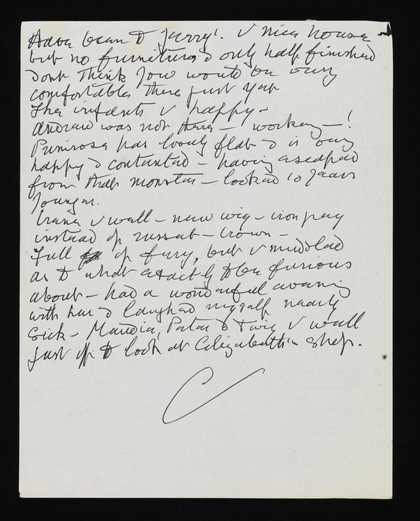 Have been to Jerry's. V nice house -
but no furniture & only half finished
Dont think you would be very
comfortable there just yet
The infants v happy -
Andrew was not there - working - !
Primrose has lovely flat & is very
happy & contented - having escaped
from that monster - looked 10 years
younger.
Irene v well - new wig - iron gray
instead of russet - brown -
Full of fury, but v muddled
as to what exactly to be furious
about - had a wonderful evening
with her & laughed myself nearly
sick - Peter & v well
Just off to look at Elizabeth's shop.
C